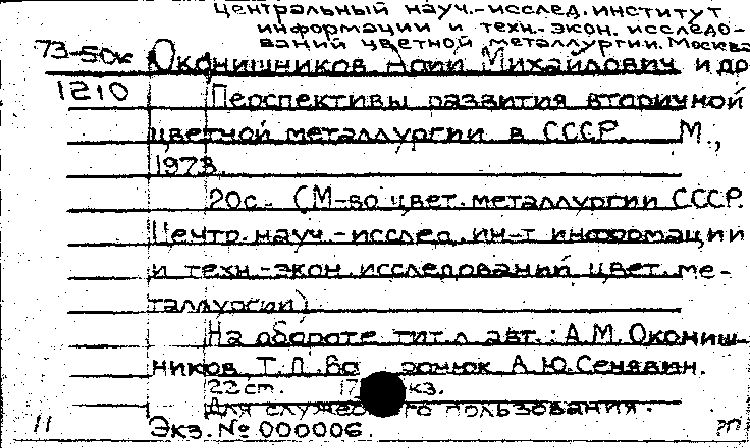 Центральный науч.-исслед. институт
информации и техн.-экон. исследо-
ваний цветной металлургии. Москва
73-50к Оконишников Арий Михайлович и др
1210 Перспективы развития вторичной
цветной металлургии в СССР. М.,
1973.
20с. (М-во цвет. металлургии СССР.
Центр. науч.-исслед. ин-т информации
и техн.-экон. исследований цвет. ме-
таллургии)
На обороте тит. л авт.: А.М. Окониш-
ников, Т.П. А.Ю. Сенявин.
22 ст. кз.
Для пользования.
11 Экз. № 000006.